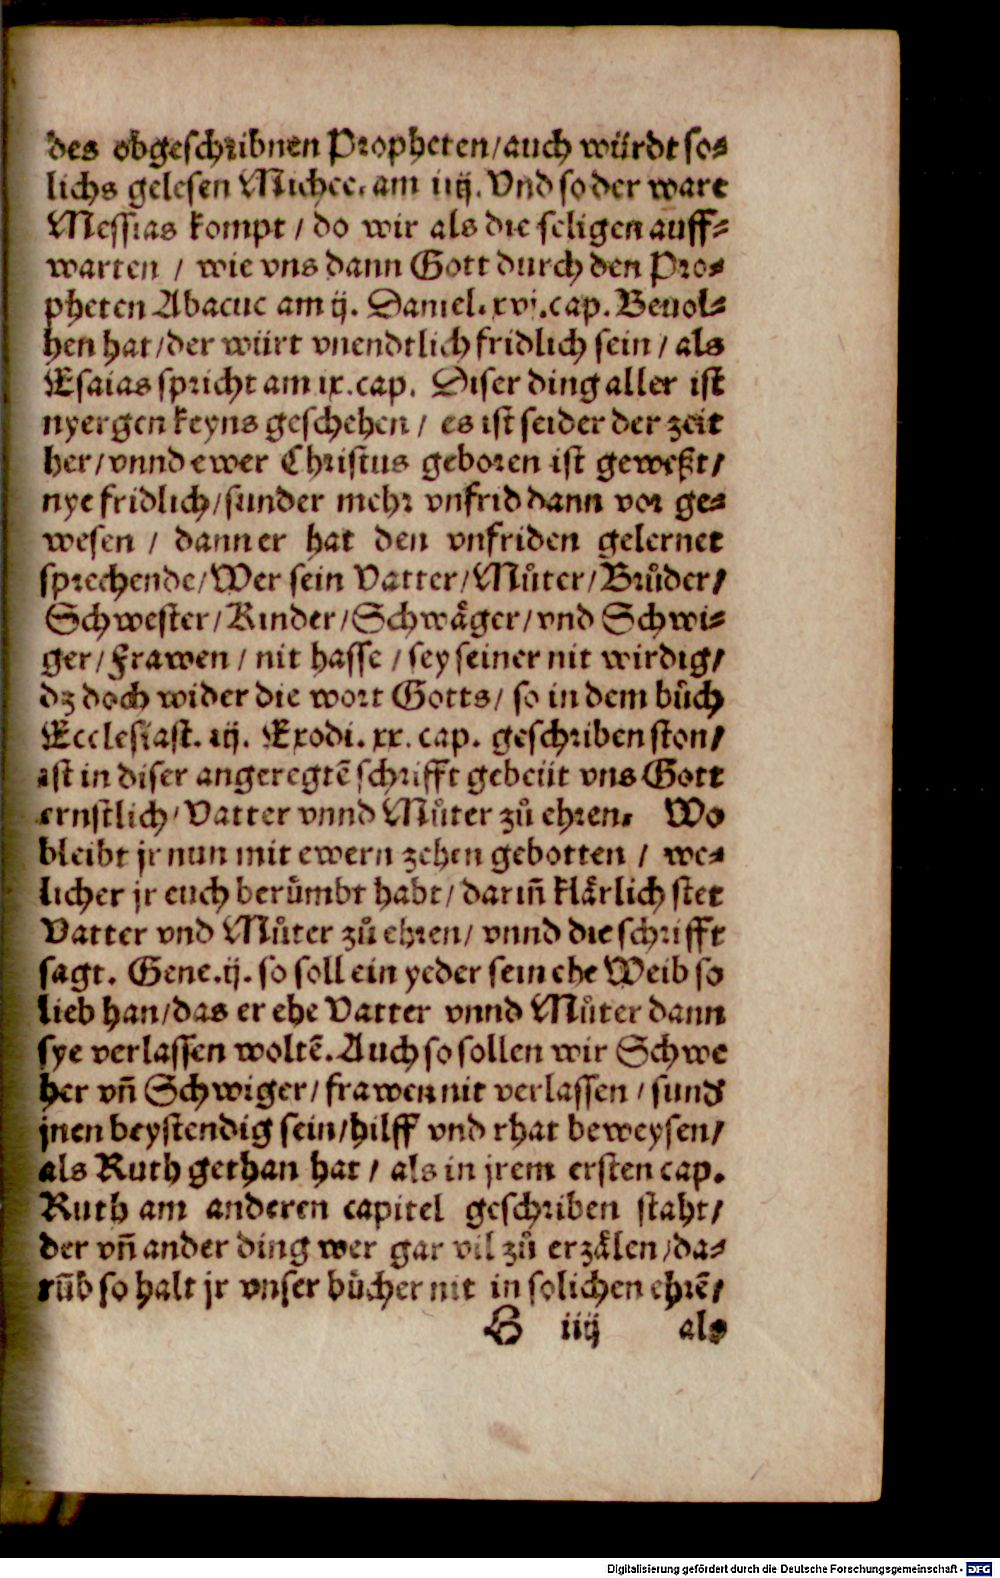 des obgeschribnen Propheten/auch würdt so-
lichs gelesen Michee. am iiij. Vnd so der ware
Messias kompt / do wir als die seligen auff-
warten / wie vns dann Gott durch den Pro-
pheten Abacuc am ij. Daniel. xvj. cap. Beuol-
hen hat/der würt vnendtlich fridlich sein / als
Esaias spricht am ix. cap. Diser ding aller ist
nyergen keyns geschehen / es ist seider der zeit
her/vnnd ewer Christus geboren ist geweßt/
nye fridlich/sunder mehr vnfrid dann vor ge-
wesen / dann er hat den vnfriden gelernet
sprechende/Wer sein Vatter/Můter/Brůder/
Schwester/Kinder/Schwäger/vnd Schwi-
ger/Frawen / nit hasse / sey seiner nit wirdig/
dz doch wider die wort Gotts/ so in dem bůch
Ecclesiast. iij. Exodi. xx. cap. geschriben ston/
ist in diser angeregtē schrifft gebeüt vns Gott
ernstlich/Vatter vnnd Můter zů ehren. Wo
bleibt jr nun mit ewern zehen gebotten / we-
licher jr euch berůmbt habt/dariñ klärlich stet
Vatter vnd Můter zů ehren/ vnnd die schrifft
sagt. Gene.ij. so soll ein yeder sein ehe Weib so
lieb han/das er ehe Vatter vnnd Můter dann
sye verlassen woltē. Auch so sollen wir Schwe
her vñ Schwiger/frawen nit verlassen / sund
jnen beystendig sein/hilff vnd rhat beweysen/
als Ruth gethan hat / als in jrem ersten cap.
Ruth am anderen capitel geschriben staht/
der vñ ander ding wer gar vil zů erzälen/da-
rūb so halt jr vnser bücher nit in solichen ehrē/
H iiij als
Digitalisierung gefördert durch die Deutsche Forschungsgemeinschaft - DFG